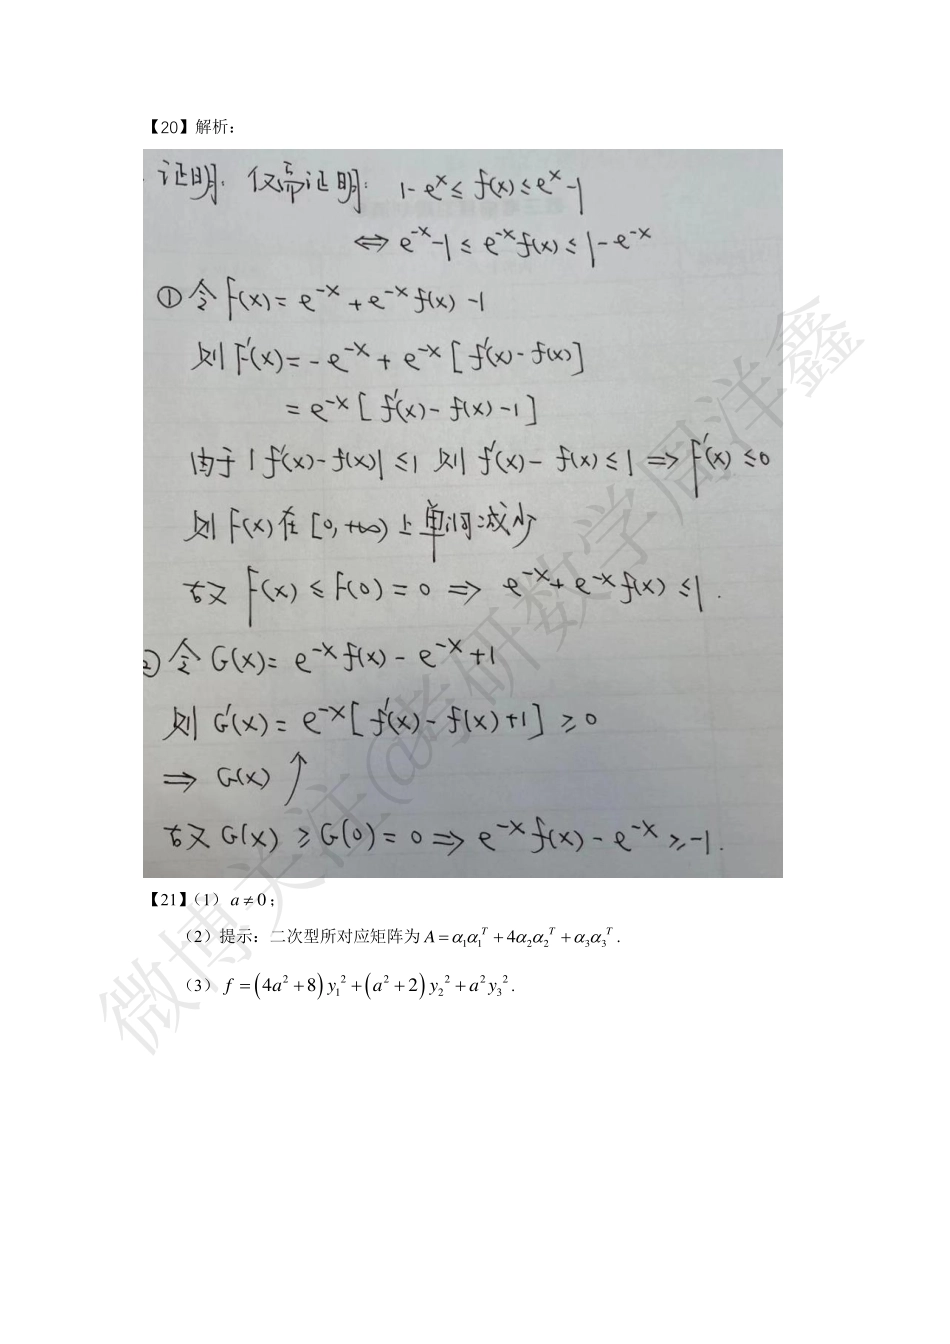 【20】解析：
证明：仅需证明：1-e^x ≤ f(x) ≤ e^x-1
⇔ e^{-x}-1 ≤ e^{-x}f(x) ≤ 1-e^{-x}
① 令 F(x)= e^{-x}+e^{-x}f(x)-1
则 F'(x)= -e^{-x}+e^{-x}[f'(x)-f(x)]
= e^{-x}[f'(x)-f(x)-1]
由于 |f'(x)-f(x)| ≤1 则 f'(x)-f(x) ≤1 ⇒ F'(x) ≤0
则 F(x) 在 [0,+∞) 上单调减少
故 F(x) ≤ F(0)=0 ⇒ e^{-x}+e^{-x}f(x) ≤1.
② 令 G(x)= e^{-x}f(x)-e^{-x}+1
则 G'(x)= e^{-x}[f'(x)-f(x)+1] ≥0
⇒ G(x) ↑
故 G(x) ≥ G(0)=0 ⇒ e^{-x}f(x)-e^{-x} ≥-1.
【21】（1）a≠0；
（2）提示：二次型所对应矩阵为 A=α₁α₁ᵀ+4α₂α₂ᵀ+α₃α₃ᵀ.
（3）f=(4a²+8)y₁²+(a²+2)y₂²+a²y₃².
微博关注@考研数学周洋鑫